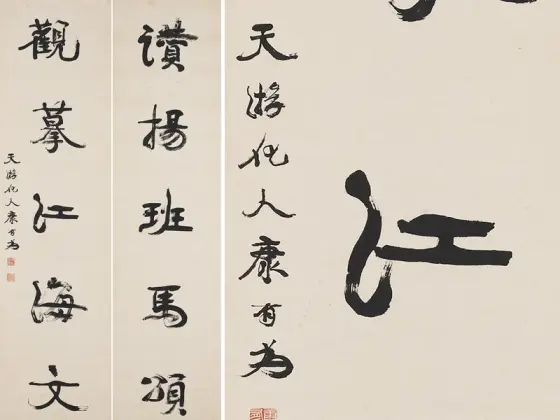 讚揚班馬頌
觀摹江海文
天游化人康有為
天游化人康有為
江